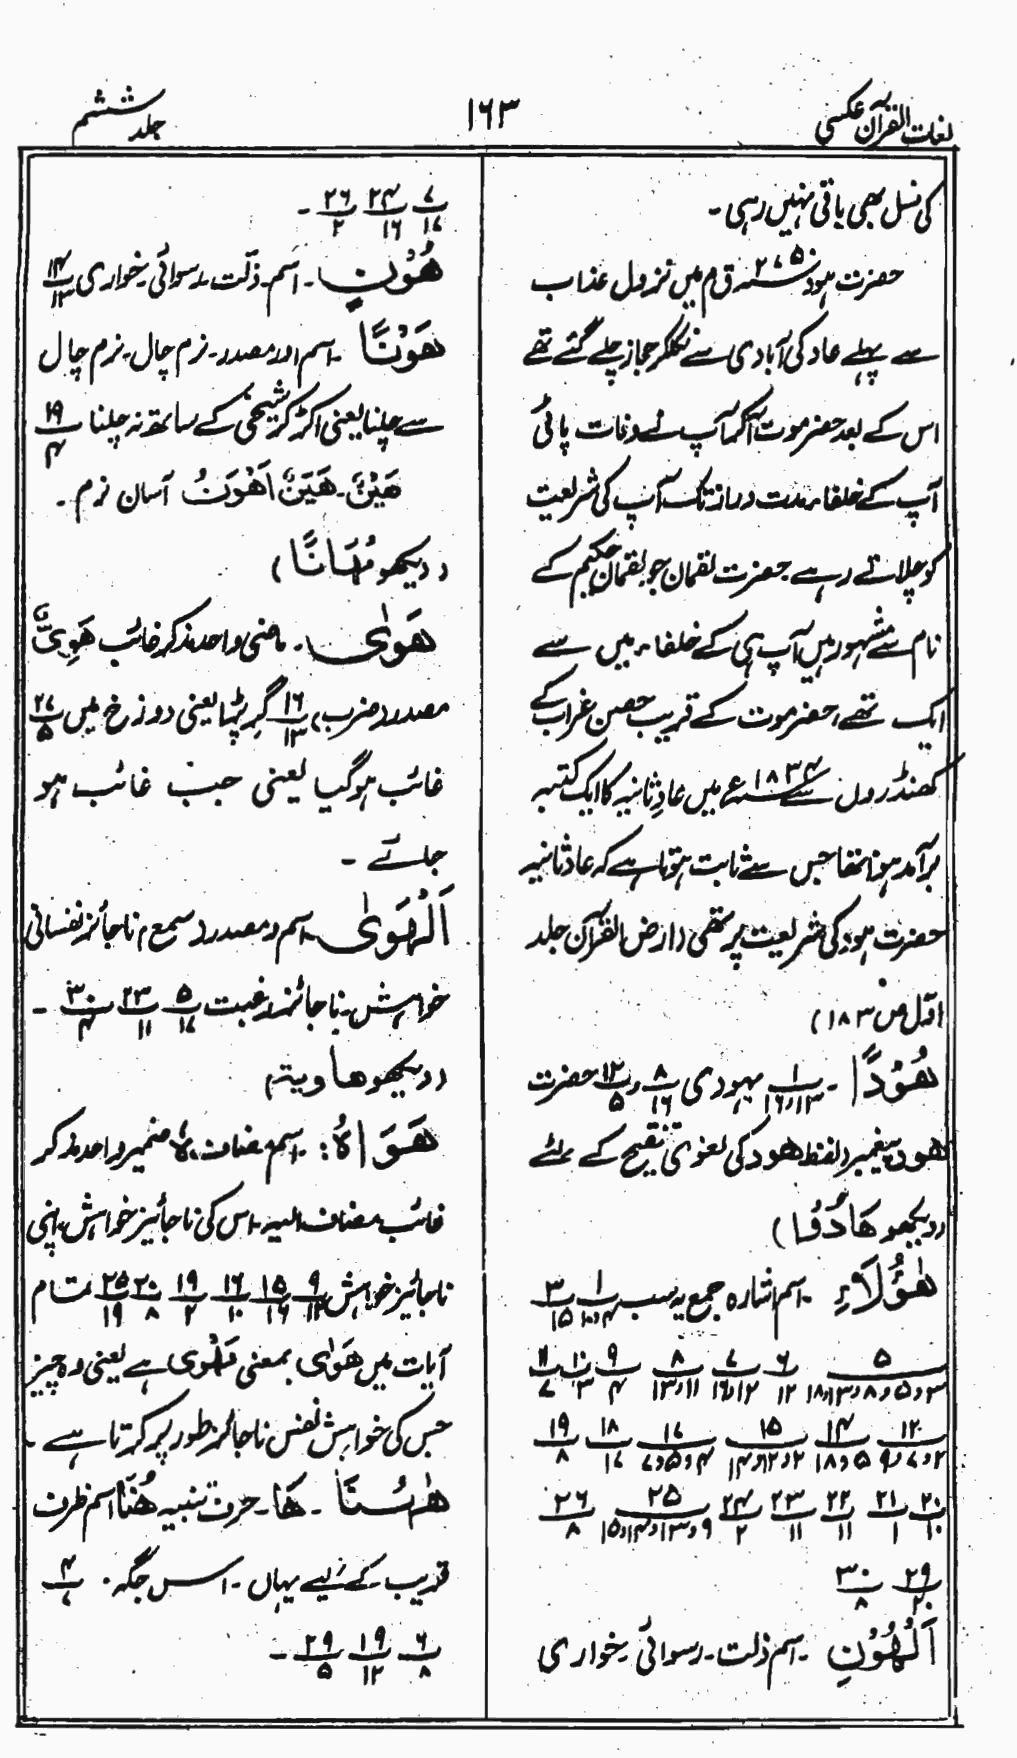 لغات القرآن عکسی
۱۶۳
جلد ششم
کی نسل بھی باقی نہیں رہی ۔
حضرت ہود ۲۷۵۰ سنہ ق م میں نزول عذاب
سے پہلے عاد کی آبادی سے نکلکر حجاز چلے گئے تھے
اس کے بعد حضرموت آگئے آپ نے وفات پائی
آپ کے خلفاء مدت دراز تک آپ کی شریعت
کو چلاتے رہے حضرت لقمان جو لقمان حکیم کے
نام سے مشہور ہیں آپ ہی کے خلفاء میں سے
ایک تھے، حضرموت کے قریب حصن غراب کے
کھنڈروں سے ۱۸۳۴ء میں عاد ثانیہ کا ایک کتبہ
برآمد ہوا تھا جس سے ثابت ہوتا ہے کہ عاد ثانیہ
حضرت ہود کی شریعت پر تھی (ارض القرآن جلد
اول ص ۱۸۳)
هُوْدًا ۔ ۱/۱۳و۱۶ یہودی ۸/۱۶ و ۱۲/۵ حضرت
ھود پیغمبر (لفظ ھود کی لغوی تنقیح کے لئے
(دیکھو ھَادُوْا)
هٰؤُلَاءِ ۔ اسم اشارہ جمع یہ سب ۱/۴و۱۰ ۳/۱۵
۵/۳و۵و۸و۱۳و۱۸ ۶/۱۲ ۷/۱۲و۱۶ ۸/۱۱و۱۳ ۹/۴ ۱۰/۳ ۱۱/۷
۱۲/۲و۷و۹ ۱۴/۵و۱۸ ۱۵/۲و۱۲و۱۴ ۱۷/۴و۵و۷ ۱۸/۱۷ ۱۹/۸
۲۰/۱۰ ۲۱/۱ ۲۲/۱۱ ۲۳/۱۱ ۲۴/۲ ۲۵/۹و۱۳و۱۴و۱۵ ۲۶/۸
۲۹/۲۰ ۳۰/۸
اَلْهُوْنِ ۔ اسم ذلت ۔ رسوائی ۔ خواری
۷/۱۷ ۲۴/۱۶ ۲۶/۲ ۔
هُوْنٍ ۔ اسم ۔ ذلّت ۔ رسوائی ۔ خواری ۱۴/۱۳
هَوْنًا ۔ اسم اور مصدر ۔ نرم چال ۔ نرم چال
سے چلنا یعنی اکڑ کر شیخی کے ساتھ نہ چلنا ۱۹/۴
هَيْنٌ ۔ هَيِّنٌ اَهْوَنُ آسان نرم ۔
(دیکھو مُهَانًا)
هَوٰى ۔ ماضی واحد مذکر غائب هَوِیٌّ
مصدر (ضرب) ۱۶/۱۳ گر پڑا یعنی دوزخ میں ۲۷/۵
غائب ہوگیا یعنی جب غائب ہو
جائے ۔
اَلْهَوٰى ۔ اسم و مصدر (سمع) ناجائز نفسانی
خواہش ۔ ناجائز رغبت ۵/۱۷ ۲۳/۱۱ ۳۰/۴ ۔
(دیکھو هاویة)
هَوَاهُ: ۔ اسم مضاف، ہ ضمیر واحد مذکر
غائب مضاف الیہ ۔ اس کی ناجائیز خواہش، اپنی
ناجائیز خواہش ۹/۱۲ ۱۵/۱۶ ۱۶/۱۰ ۱۹/۲ ۲۰/۸ ۲۵/۱۹ تمام
آیات میں هَوٰى بمعنی مَهْوِی ہے یعنی وہ چیز
جس کی خواہش نفس ناجائز طور پر کرتا ہے ۔
هٰهُنَا ۔ هَا ۔ حرف تنبیہ هُنَا اسم ظرف
قریب ۔ کے لیے یہاں ۔ اس جگہ ۔ ۴/۷
۶/۸ ۱۹/۱۲ ۲۹/۵ ۔